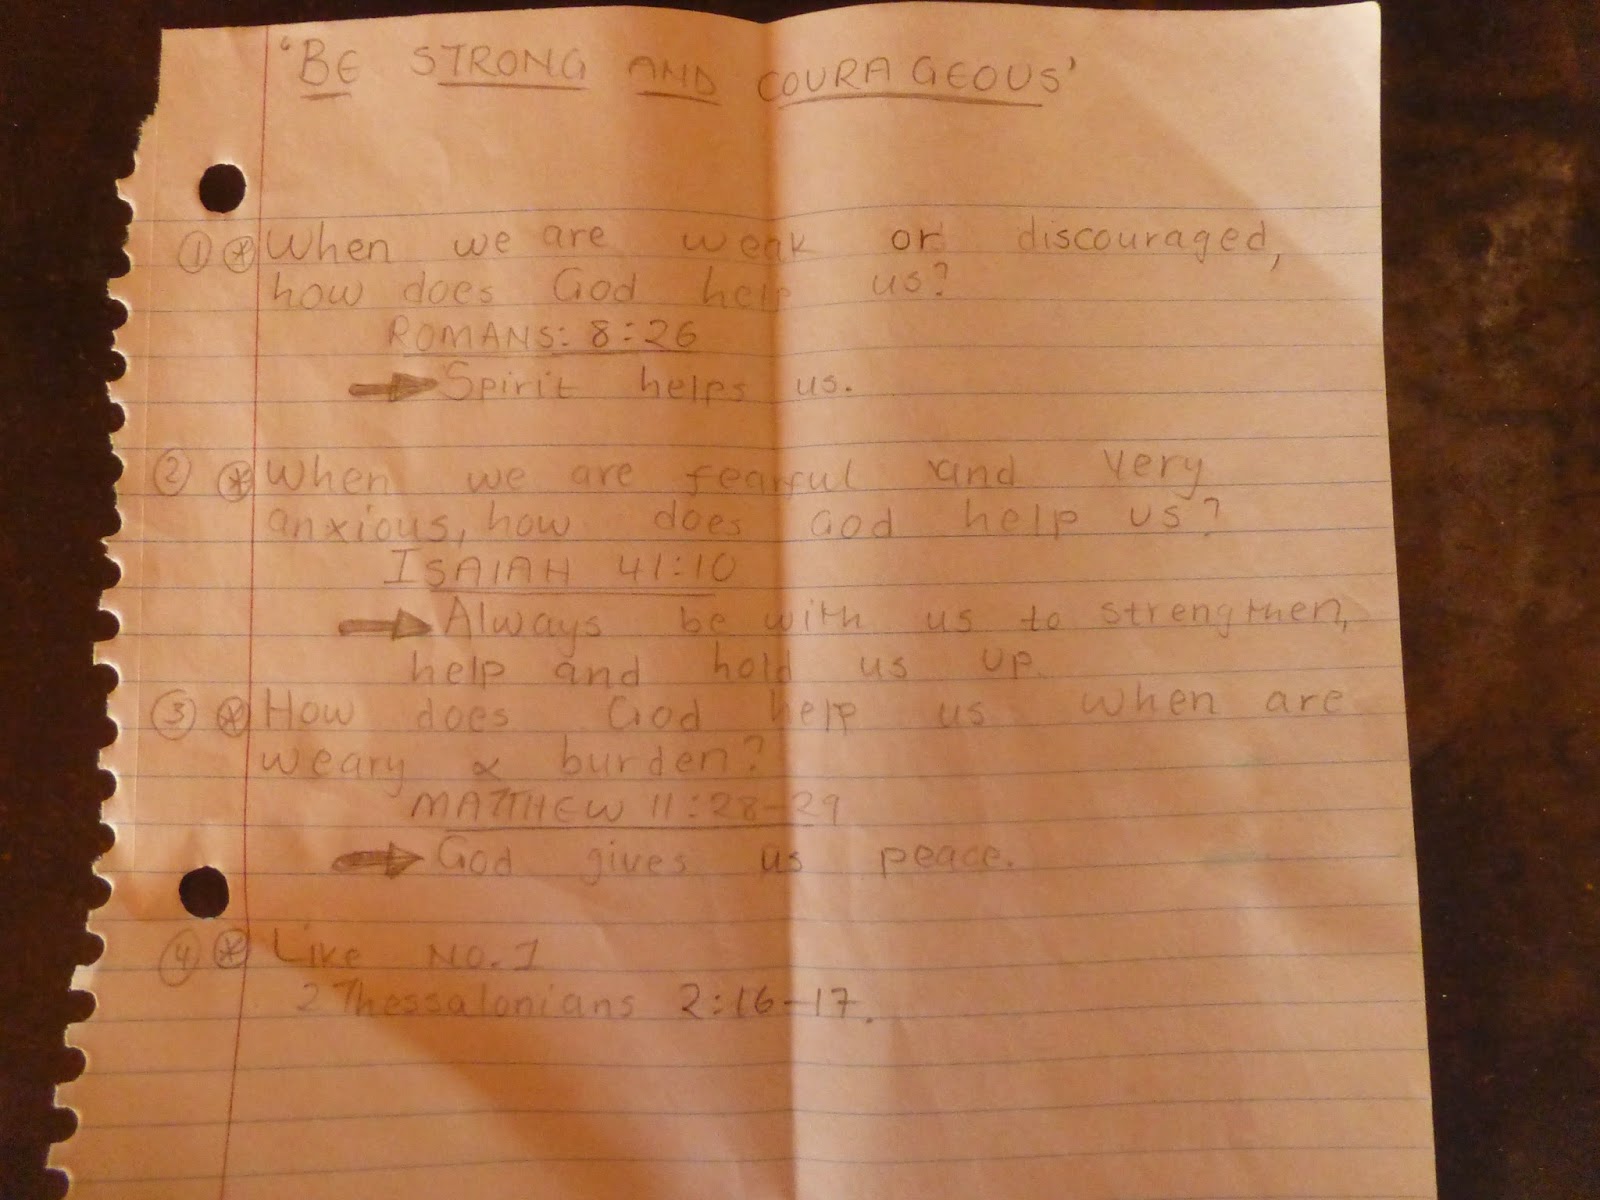 'BE STRONG AND COURAGEOUS'
① ⊛ When we are weak or discouraged,
how does God help us?
ROMANS: 8:26
→ Spirit helps us.
② ⊛ When we are fearful and very
anxious, how does God help us?
ISAIAH 41:10
→ Always be with us to strengthen,
help and hold us up.
③ ⊛ How does God help us when are
weary & burden?
MATTHEW 11:28-29
→ God gives us peace.
④ ⊛ Like NO.1
2 Thessalonians 2:16-17.